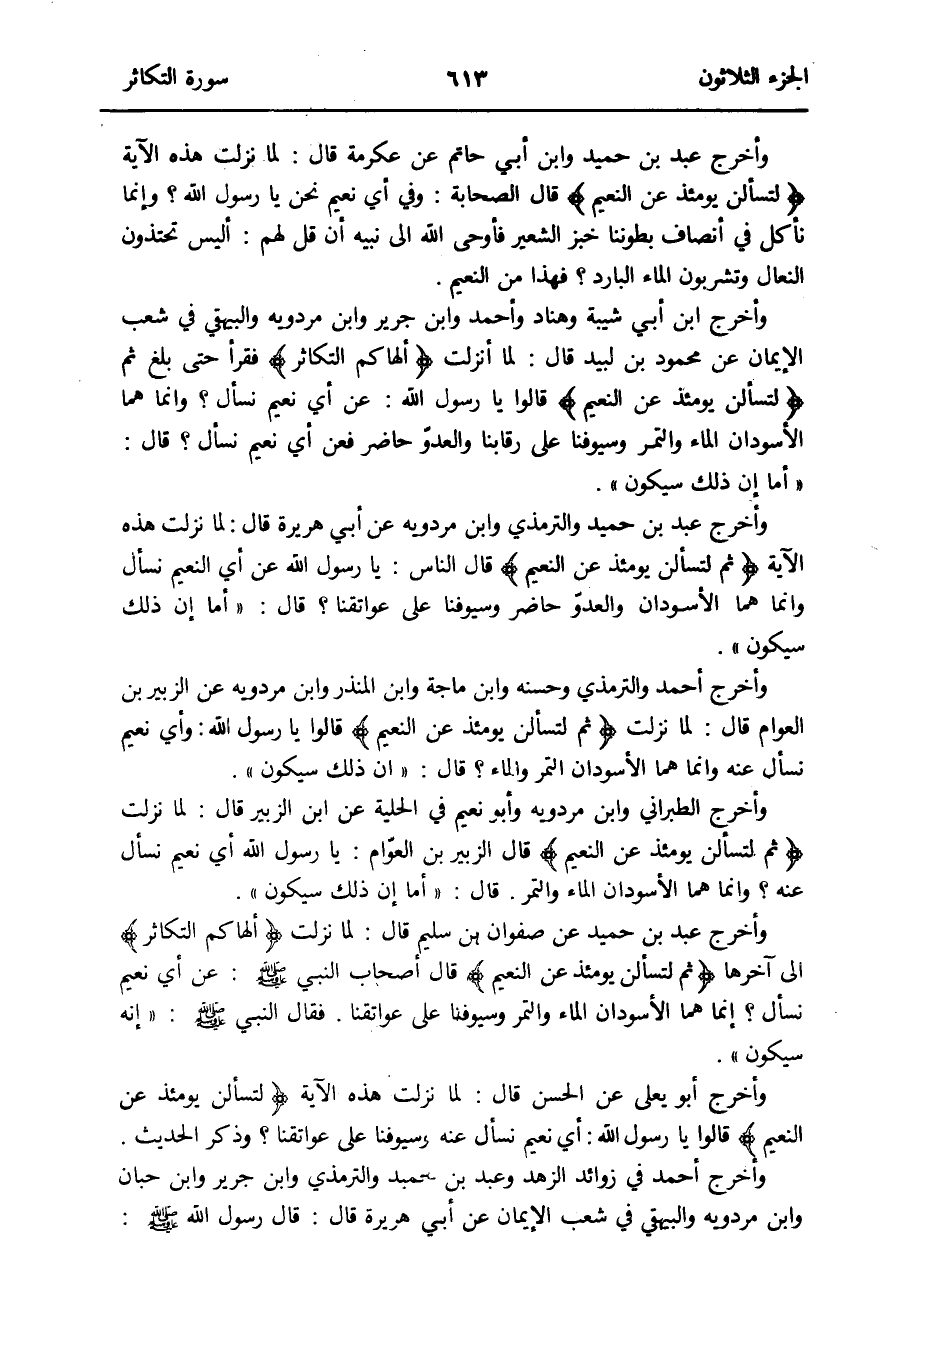 الجزء الثلاثون ٦١٣ سورة التكاثر
وأخرج عبد بن حميد وابن أبي حاتم عن عكرمة قال : لما نزلت هذه الآية
﴿ لتسألن يومئذ عن النعيم ﴾ قال الصحابة : وفي أي نعيم نحن يا رسول الله ؟ وإنما
نأكل في أنصاف بطوننا خبز الشعير فأوحى الله الى نبيه أن قل لهم : أليس تحتذون
النعال وتشربون الماء البارد ؟ فهذا من النعيم .
وأخرج ابن أبي شيبة وهناد وأحمد وابن جرير وابن مردويه والبيهقي في شعب
الإيمان عن محمود بن لبيد قال : لما أنزلت ﴿ ألهاكم التكاثر ﴾ فقرأ حتى بلغ ثم
﴿ لتسألن يومئذ عن النعيم ﴾ قالوا يا رسول الله : عن أي نعيم نسأل ؟ وانما هما
الأسودان الماء والتمر وسيوفنا على رقابنا والعدوّ حاضر فعن أي نعيم نسأل ؟ قال :
« أما إن ذلك سيكون » .
وأخرج عبد بن حميد والترمذي وابن مردويه عن أبي هريرة قال : لما نزلت هذه
الآية ﴿ ثم لتسألن يومئذ عن النعيم ﴾ قال الناس : يا رسول الله عن أي النعيم نسأل
وانما هما الأسودان والعدوّ حاضر وسيوفنا على عواتقنا ؟ قال : « أما إن ذلك
سيكون » .
وأخرج أحمد والترمذي وحسنه وابن ماجة وابن المنذر وابن مردويه عن الزبير بن
العوام قال : لما نزلت ﴿ ثم لتسألن يومئذ عن النعيم ﴾ قالوا يا رسول الله : وأي نعيم
نسأل عنه وانما هما الأسودان التمر والماء ؟ قال : « ان ذلك سيكون » .
وأخرج الطبراني وابن مردويه وأبو نعيم في الحلية عن ابن الزبير قال : لما نزلت
﴿ ثم لتسألن يومئذ عن النعيم ﴾ قال الزبير بن العوّام : يا رسول الله أي نعيم نسأل
عنه ؟ وانما هما الأسودان الماء والتمر . قال : « أما إن ذلك سيكون » .
وأخرج عبد بن حميد عن صفوان بن سليم قال : لما نزلت ﴿ ألهاكم التكاثر ﴾
الى آخرها ﴿ ثم لتسألن يومئذ عن النعيم ﴾ قال أصحاب النبي ﷺ : عن أي نعيم
نسأل ؟ إنما هما الأسودان الماء والتمر وسيوفنا على عواتقنا . فقال النبي ﷺ : « إنه
سيكون » .
وأخرج أبو يعلى عن الحسن قال : لما نزلت هذه الآية ﴿ لتسألن يومئذ عن
النعيم ﴾ قالوا يا رسول الله : أي نعيم نسأل عنه وسيوفنا على عواتقنا ؟ وذكر الحديث .
وأخرج أحمد في زوائد الزهد وعبد بن حميد والترمذي وابن جرير وابن حبان
وابن مردويه والبيهقي في شعب الإيمان عن أبي هريرة قال : قال رسول الله ﷺ :